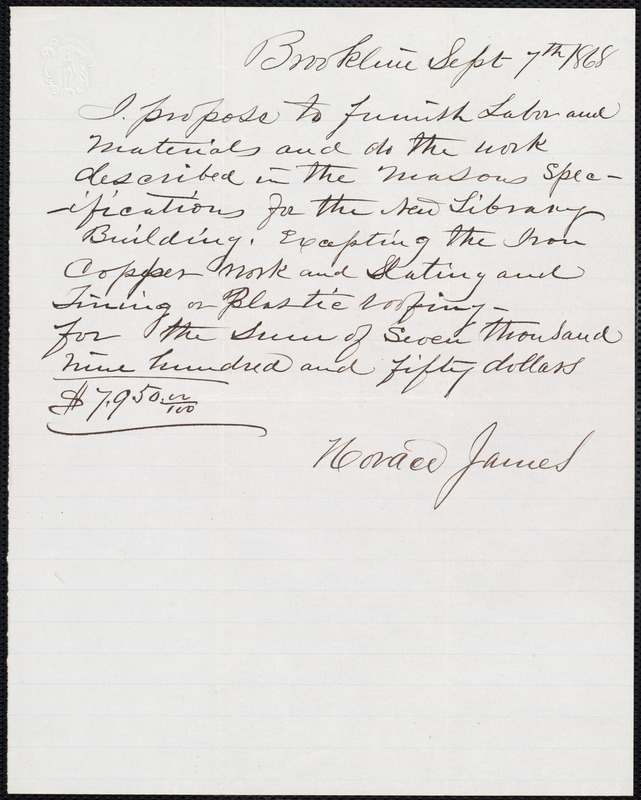 Brookline Sept 7th 1868
I. propose to furnish Labor and
Materials and do the work
described in the Masons Spec-
-ifications for the New Library
Building. Excepting the Iron
Copper work and Slating and
Tining or Plastic roofing-
for the Sum of Seven thousand
nine hundred and fifty dollars
$7,950.00/100
Horace James